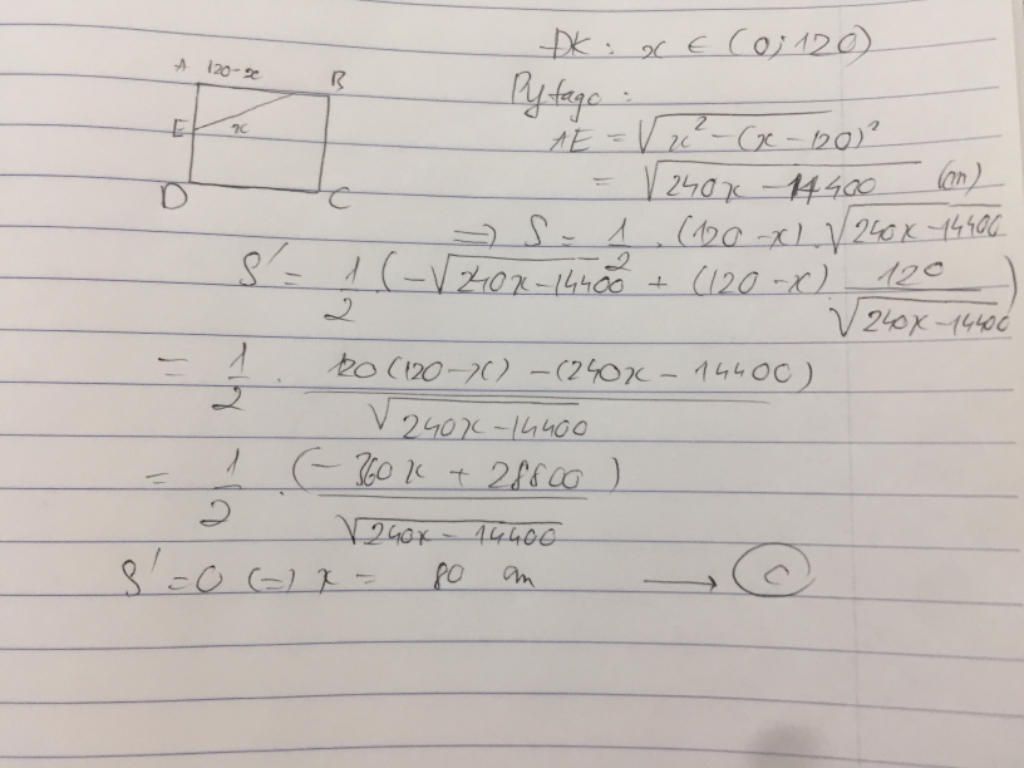 ĐK: x ∈ (0; 120)
A 120-x B
Pytago:
E x
AE = √(x² - (x - 120)²)
= √(240x - 14400) (cm)
D C
=> S = 1/2 . (120 - x) . √(240x - 14400)
S' = 1/2 (-√(240x - 14400) + (120 - x) 120/√(240x - 14400))
= 1/2 . (120(120 - x) - (240x - 14400))/√(240x - 14400)
= 1/2 . (-360x + 28800)/√(240x - 14400)
S' = 0 (=) x = 80 cm → C